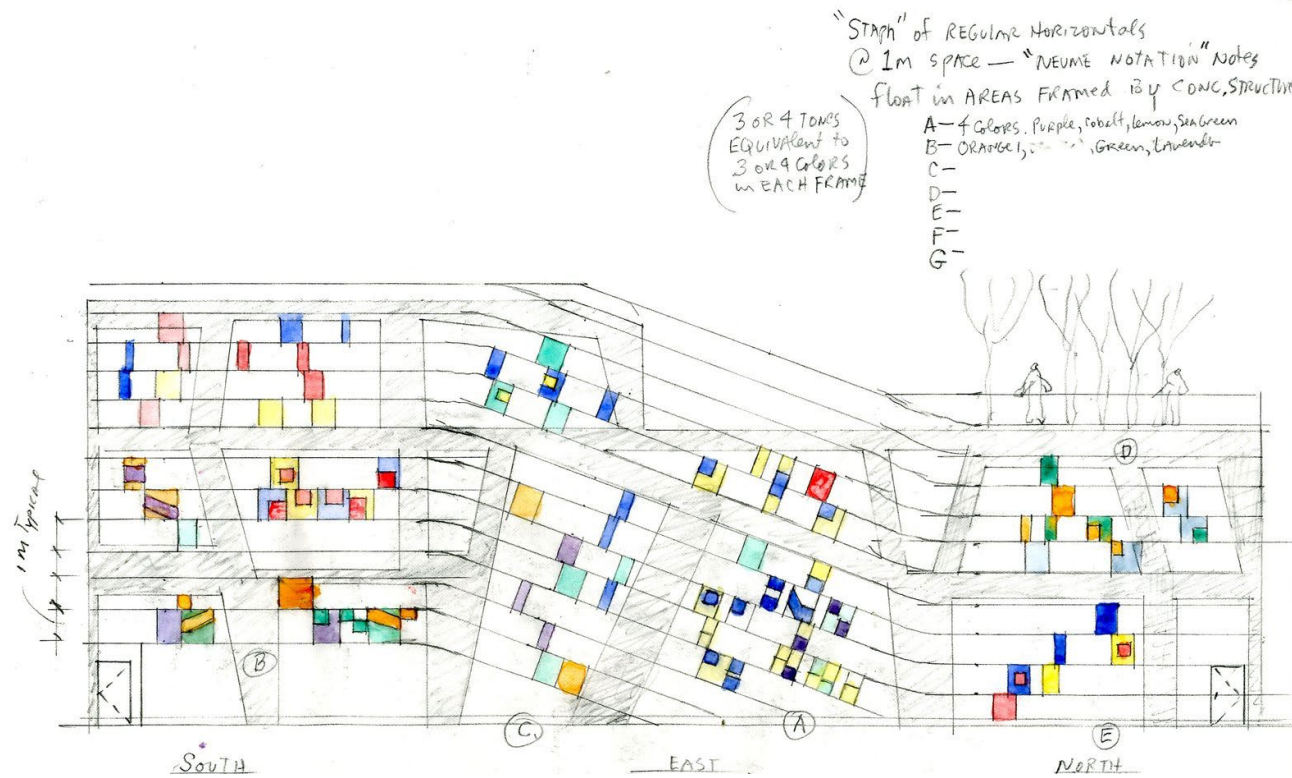 "STAph" of REGULAR HORIZONtals
@ 1m SPACE — "NEUME NOTATION" Notes
float in AREAS FRAMED By CONC. STRUCTURE
3 OR 4 TONES
EQUIVALENT to
3 OR 4 Colors
in EACH FRAME
A— 4 Colors. Purple, Cobalt, Lemon, Sea Green
B— ORANGE 1, , Green, Lavender
C—
D—
E—
F—
G—
1m Typical
D
B
C
A
E
SOUTH
EAST
NORTH